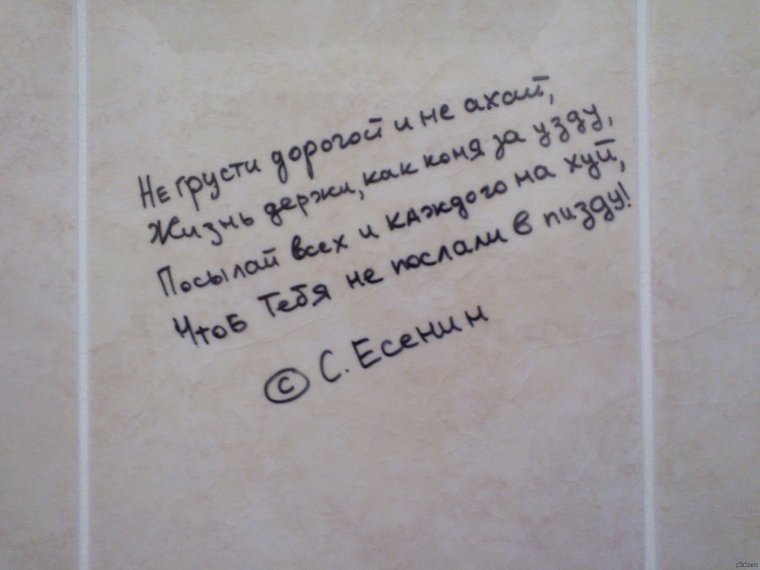 Не грусти дорогой и не ахай,
Жизнь держи, как коня за узду,
Посылай всех и каждого на хуй,
Чтоб Тебя не послали в пизду!
© С. Есенин